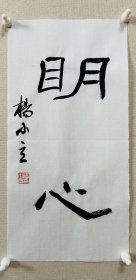 明心
楊小立